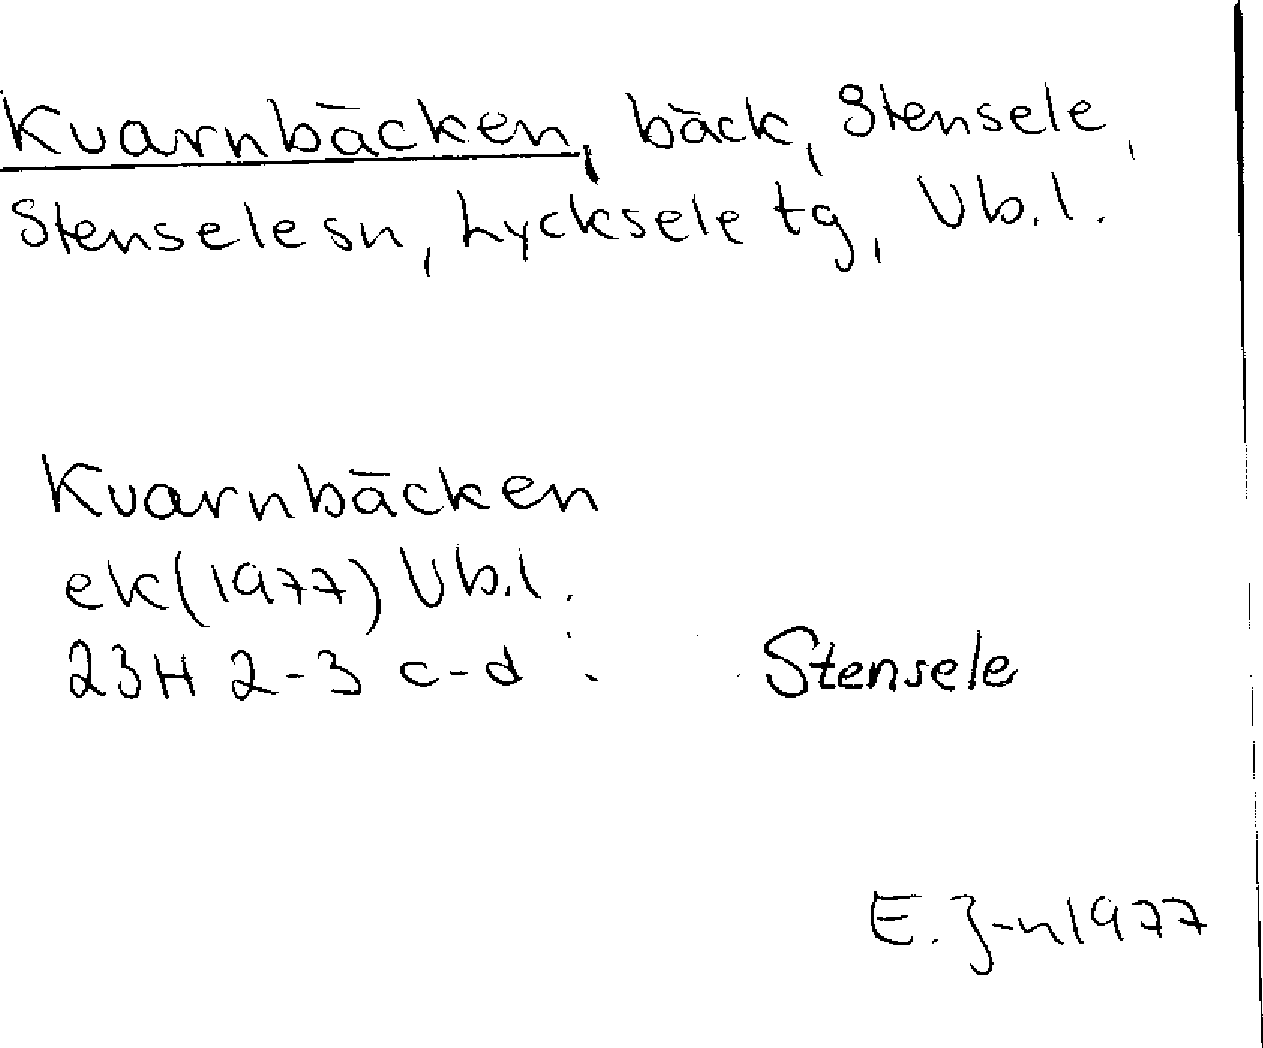 Kvarnbäcken, bäck, Stensele,
Stensele sn, Lycksele tg, Vb.l.
Kvarnbäcken
ek(1977) Vb.l.
23H 2-3 c-d
Stensele
E. J-n 1977